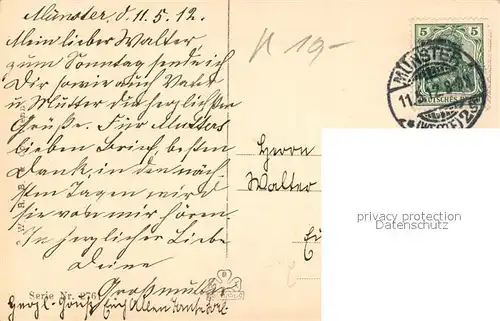 Münster, d. 11.5.12.
Mein lieber Walter
zum Sonntag sende ich
Dir sowie auch Vater
u Mutter die herzlichsten
Grüße. Für Mutters
lieben Brief, besten
Dank, in den näch-
sten Tagen wird
sie von mir hören.
In herzlicher Liebe
Deine
Großmutter
Serie Nr. 276
19-
5 5
MÜNSTER
11.5.12
(WESTF.) 2
DEUTSCHES
Herrn
Walter
privacy protection
Datenschutz